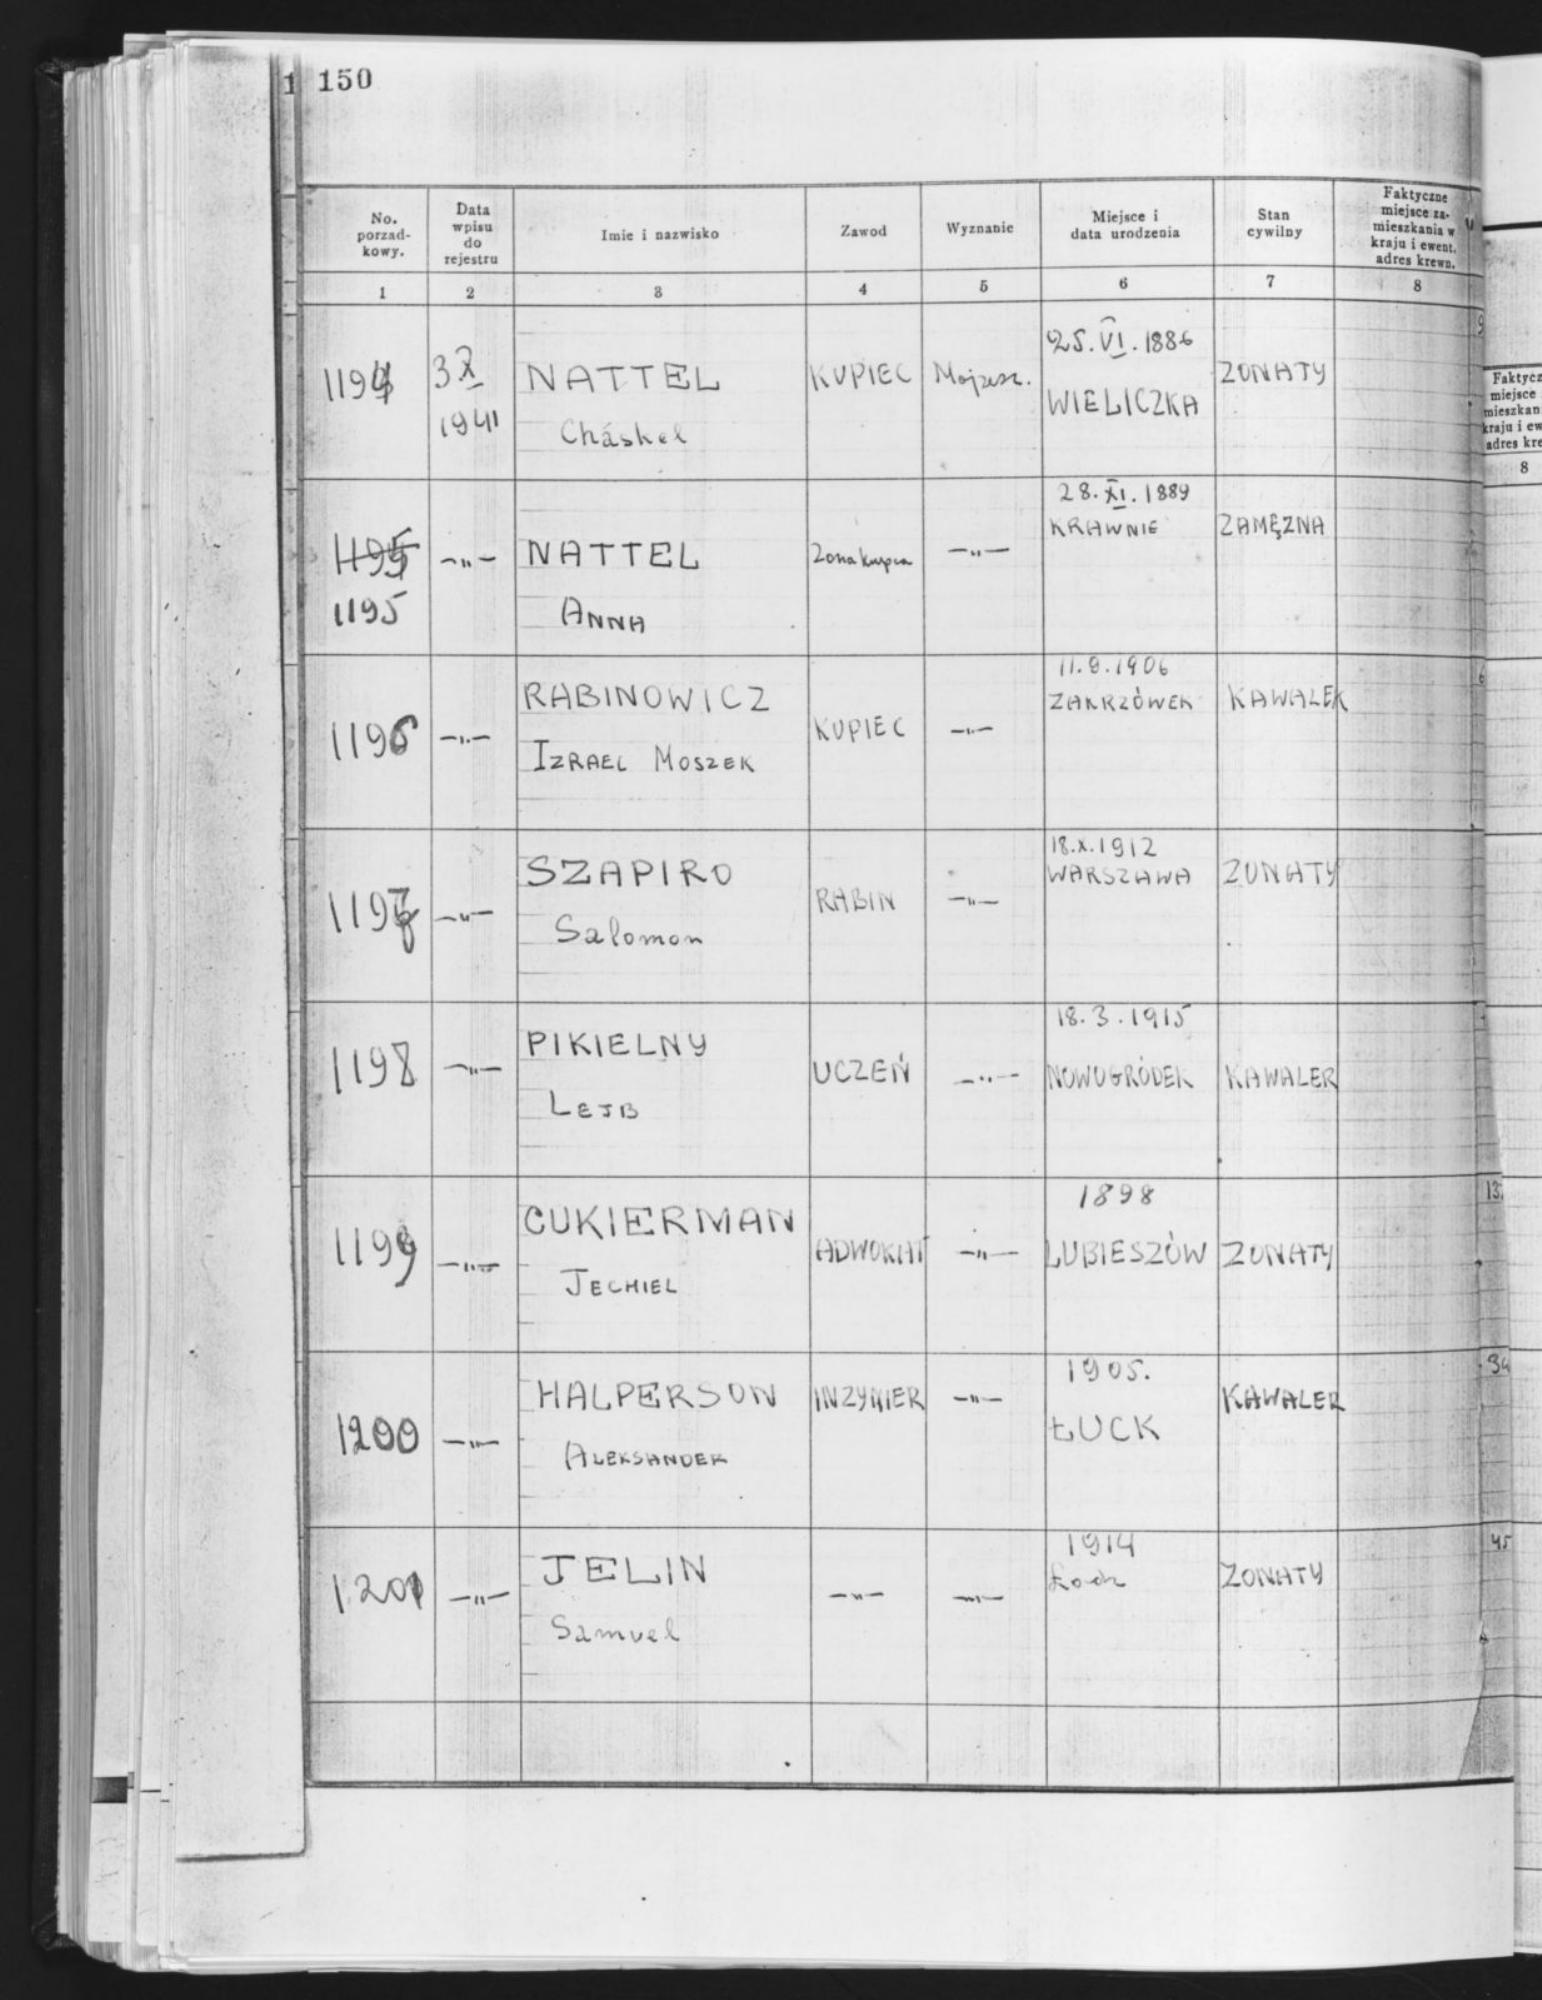 1 150
No.
porzad-
kowy.
Data
wpisu
do
rejestru
Imie i nazwisko
Zawod
Wyznanie
Miejsce i
data urodzenia
Stan
cywilny
Faktyczne
miejsce za-
mieszkania w
kraju i ewent.
adres krewn.
1 2 3 4 5 6 7 8
1194
3 X
1941
NATTEL
Cháskel
KUPIEC
Mojżesz.
25. VI. 1886
WIELICZKA
ZONATY
1195
1195
—"—
NATTEL
ANNA
Zona kupca
—"—
28. XI. 1889
KRAWNIE
ZAMĘZNA
1196
—"—
RABINOWICZ
IZRAEL MOSZEK
KUPIEC
—"—
11.9.1906
ZAKRZÓWEK
KAWALER
1197
—"—
SZAPIRO
Salomon
RABIN
—"—
18.X.1912
WARSZAWA
ZONATY
1198
—"—
PIKIELNY
LEJB
UCZEŃ
—"—
18.3.1915
NOWOGRÓDEK
KAWALER
1199
—"—
CUKIERMAN
JECHIEL
ADWOKAT
—"—
1898
LUBIESZÓW
ZONATY
1200
—"—
HALPERSON
ALEKSANDER
INZYNIER
—"—
1905.
ŁUCK
KAWALER
1201
—"—
JELIN
Samuel
—"—
—"—
1914
Łodz
ZONATY
Faktycz
miejsce
mieszkan
kraju i ew
adres kre
8